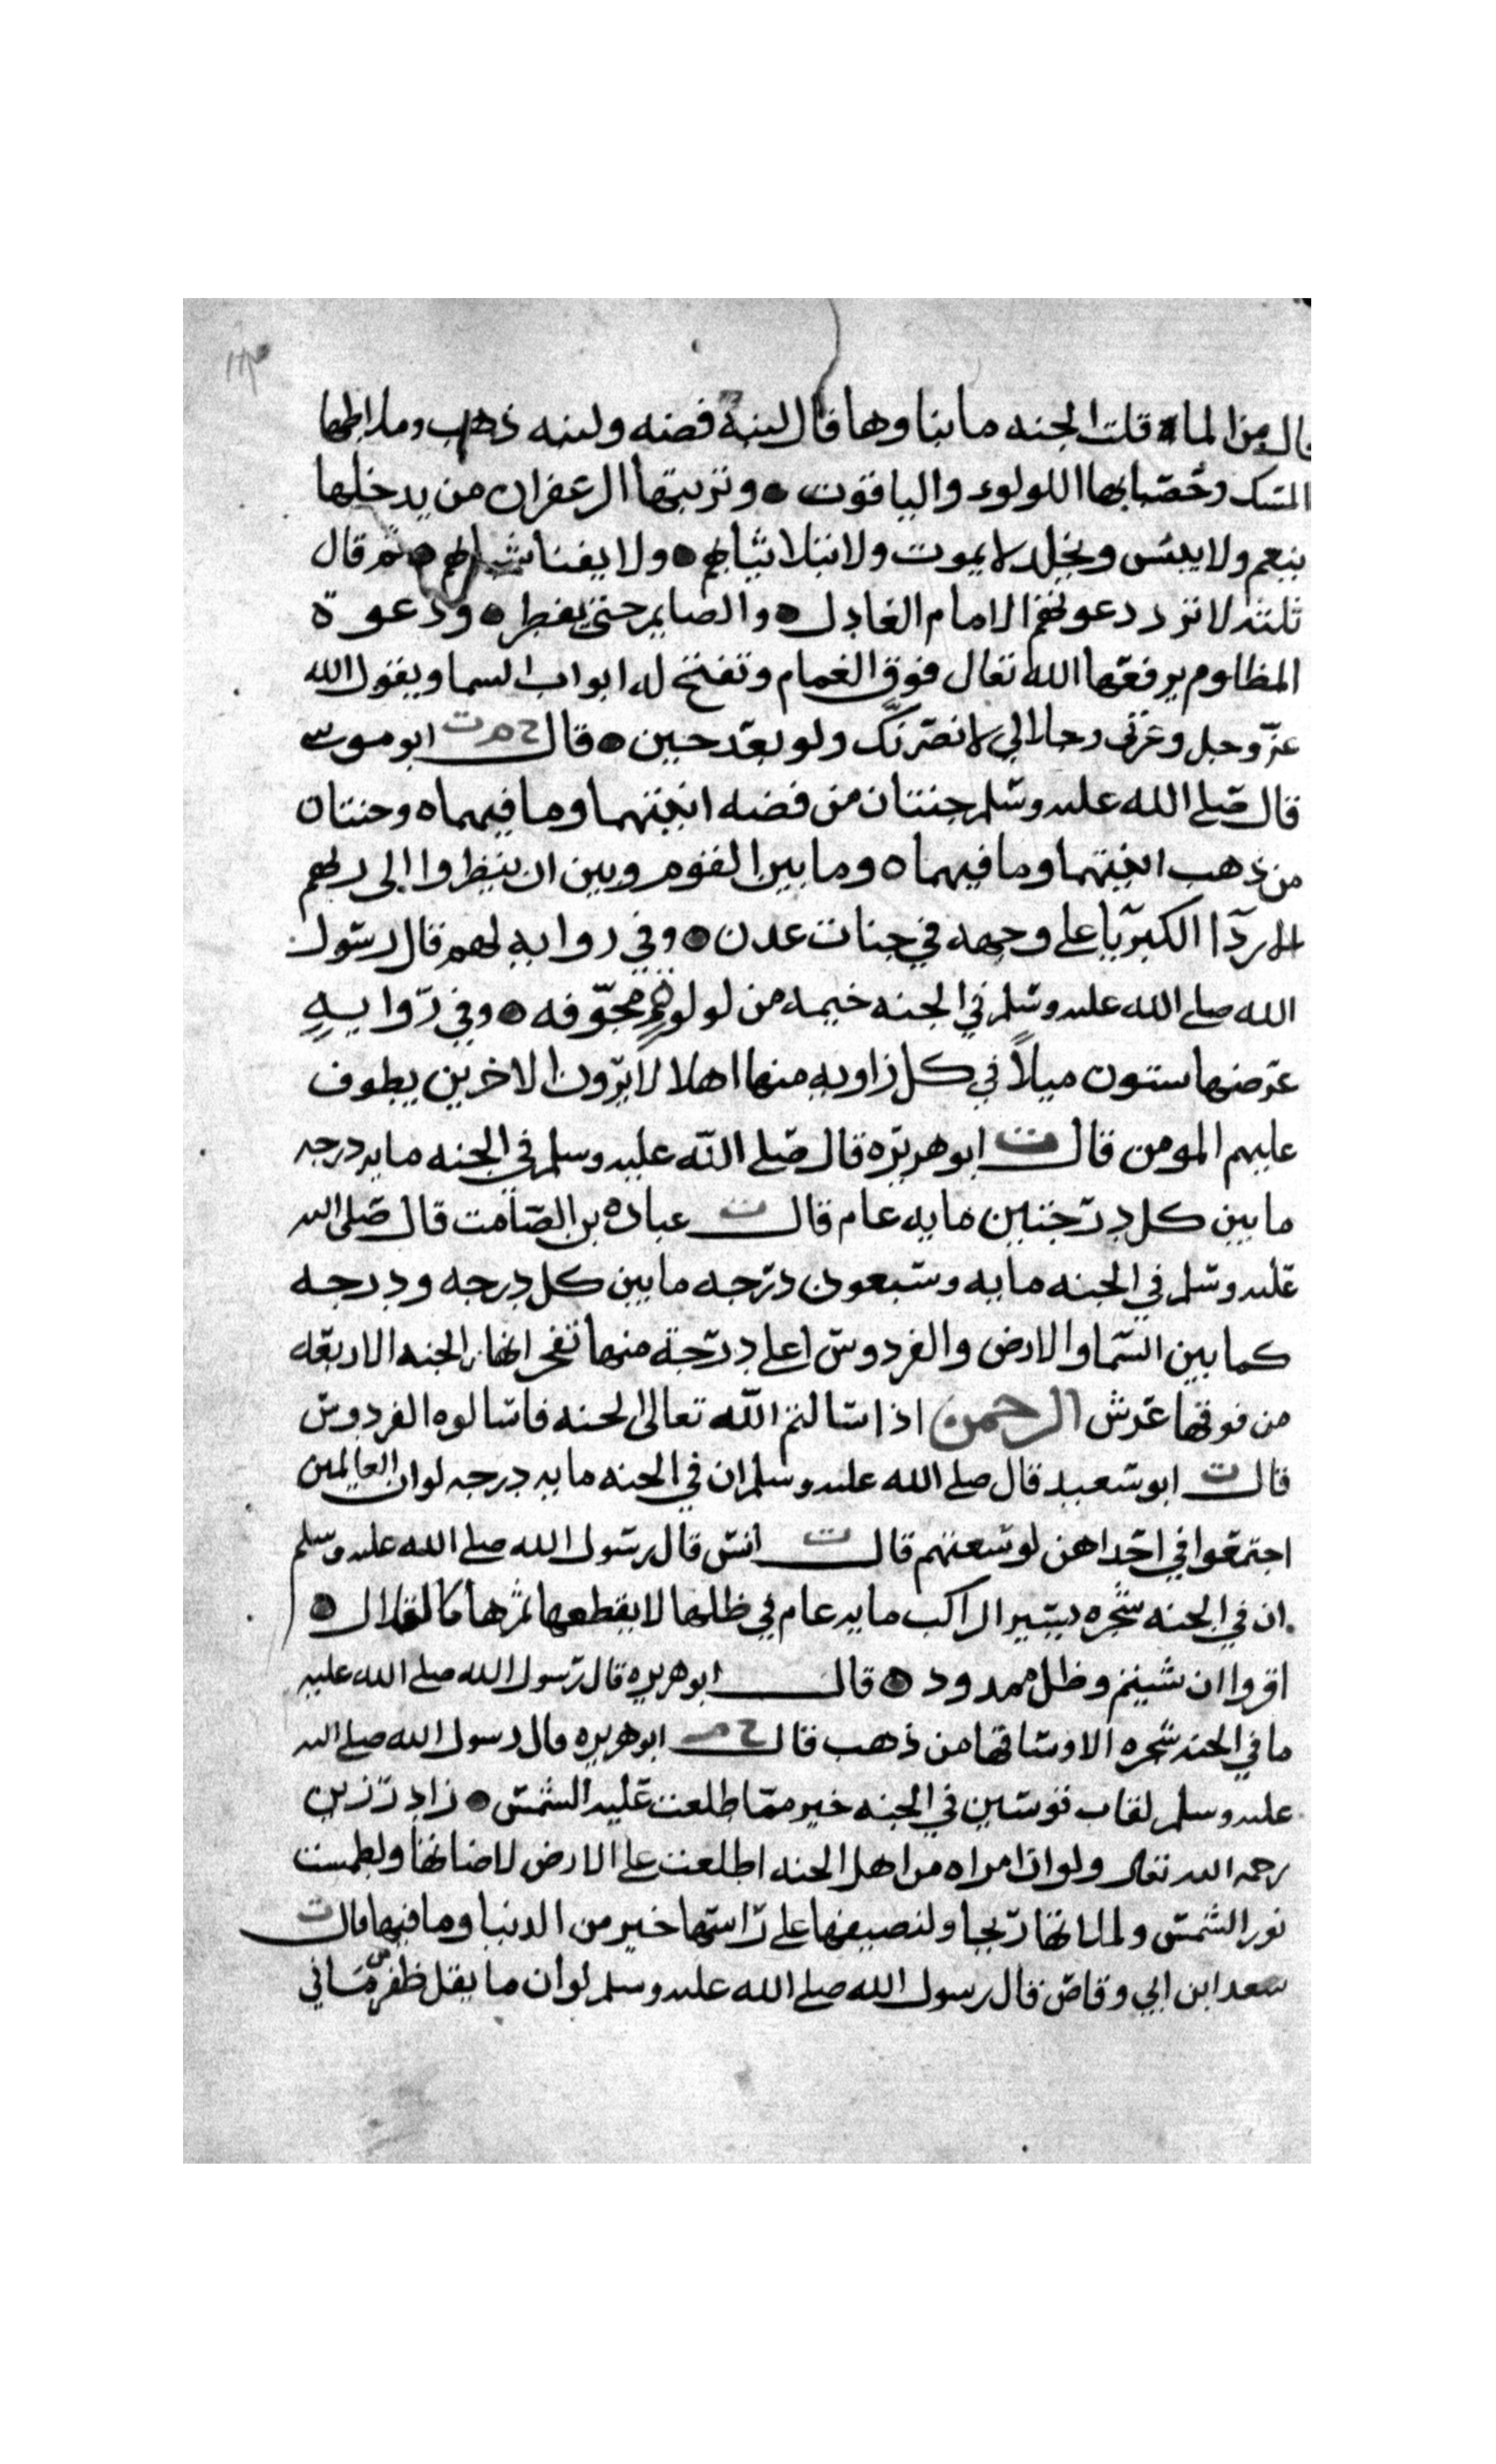 قال من الما ٥ قلت الجنه ما بناوها قال لبنة فضه ولبنه ذهب وملاطها
المسك وحصباها اللولوء والياقوت ٥ وتربتها الزعفران من يدخلها
ينعم ولا يبئس ويخلد لا يموت ولا تبلا ثيابهم ٥ ولا يفنا شبابهم ٥ ثم قال
ثلثه لا ترد دعوتهم الامام العادل ٥ والصايم حتى يفطر ٥ ودعوة
المظلوم يرفعها الله تعالى فوق الغمام وتفتح له ابواب السما ويقول الله
عز وجل وعزتى وجلالي لانصرنك ولو بعد حين ٥ قال خ م ت ابو موسى
قال صلى الله عليه وسلم جنتان من فضه انيتهما وما فيهما ٥ وجنتان
من ذهب انيتهما وما فيهما ٥ وما بين القوم وبين ان ينظروا الى ربهم
الا ردا الكبريا على وجهه في جنات عدن ٥ وفي روايه لهم قال رسول
الله صلى الله عليه وسلم في الجنه خيمه من لولوة مجوفه ٥ وفي روايه
عرضها ستون ميلاً في كل زاويه منها اهلا لا يرون الاخرين يطوف
عليهم المومن قال ت ابو هريره قال صلى الله عليه وسلم في الجنه مايه درجه
ما بين كل درجتين مايه عام قال ت عباده بن الصامت قال صلى الله
عليه وسلم في الجنه مايه وسبعون درجه ما بين كل درجه ودرجه
كما بين السما والارض والفردوس اعلى درجة منها تفجر انهار الجنه الاربعه
من فوقها عرش الرحمن اذا سالتم الله تعالى الجنه فاسالوه الفردوس
قال ت ابو سعيد قال صلى الله عليه وسلم ان في الجنه مايه درجه لو ان العالمين
اجتمعوا في احداهن لوسعتهم قال ت انس قال رسول الله صلى الله عليه وسلم
ان في الجنه شجره يسير الراكب مايه عام في ظلها لا يقطعها ثمرها كالقلال ٥
اقروا ان شيتم وظل ممدود ٥ قال ابو هريره قال رسول الله صلى الله عليه
ما في الجنه شجره الا وساقها من ذهب قال خ م ابو هريره قال رسول الله صلى الله
عليه وسلم لقاب قوسين في الجنه خير مما طلعت عليه الشمس ٥ زاد رزين
رحمه الله تعالى ولو ان امراه من اهل الجنه اطلعت على الارض لاضاتها ولطمست
نور الشمس ولملاتها ريحا ولنصيفها على راسها خير من الدنيا وما فيها قال ت
سعد ابن ابي وقاص قال رسول الله صلى الله عليه وسلم لو ان ما يقل ظفر مما في